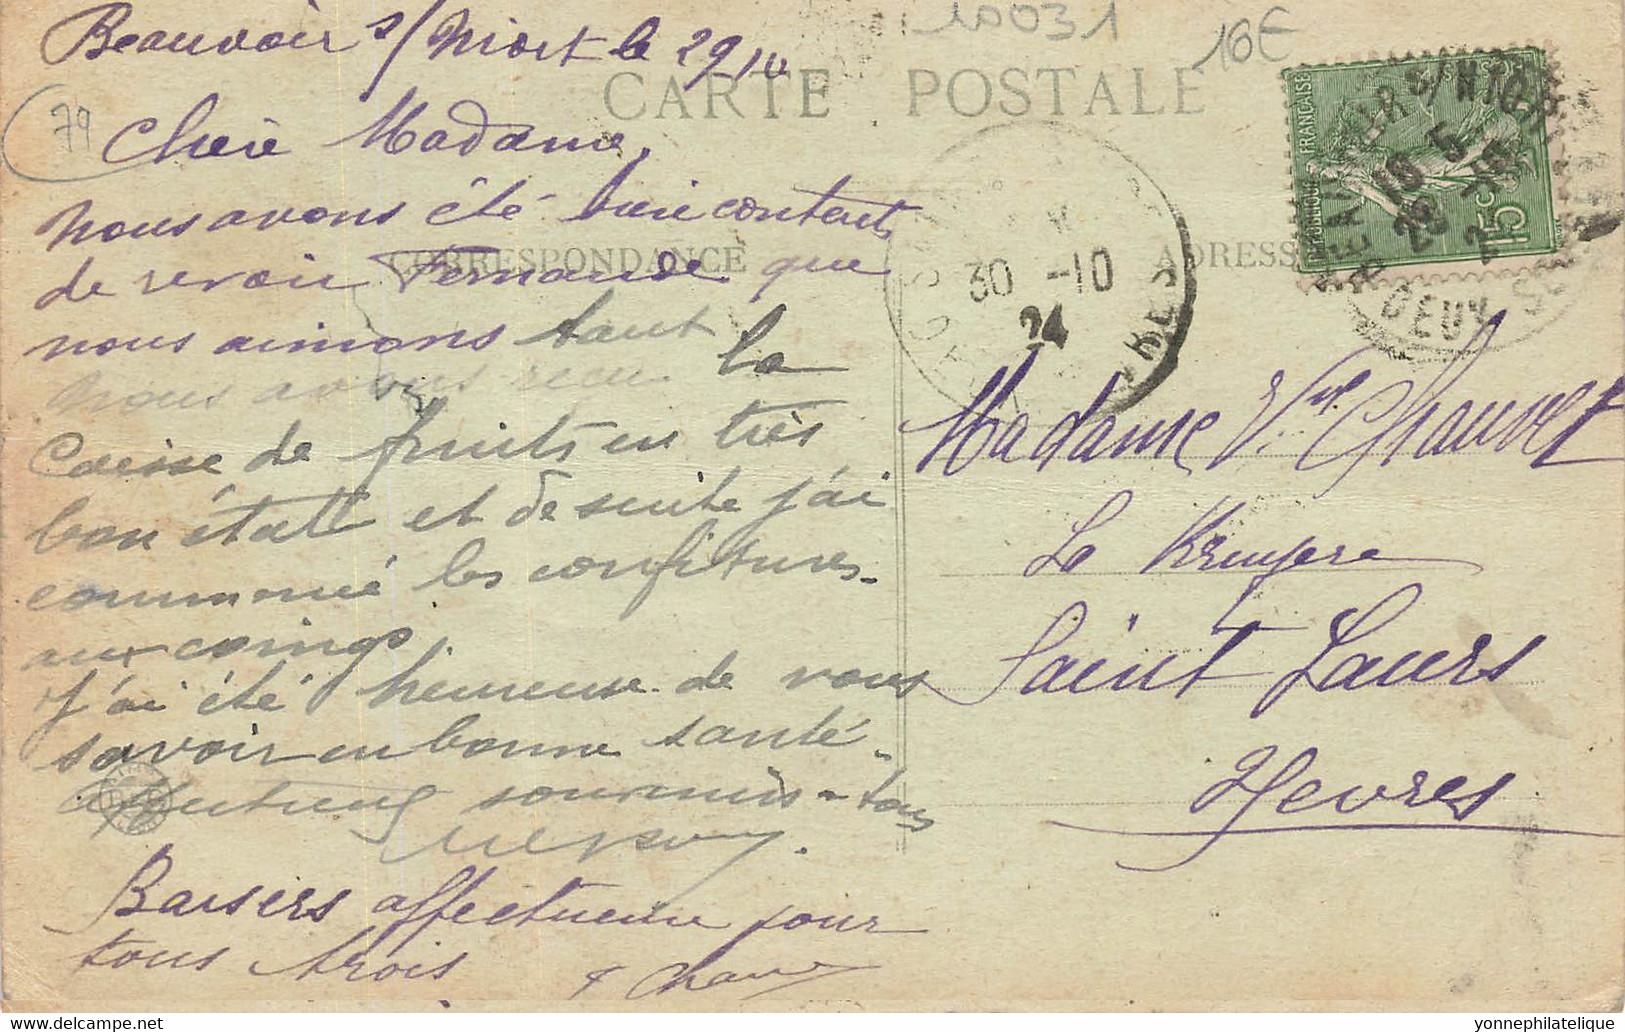 10031
10E
79
Beauvoir s/ Niort le 29/10
CARTE POSTALE
Chère Madame,
nous avons été bien content
CORRESPONDANCE
ADRESSE
de revoir Fernande que
nous aimons tant
nous avons recu la
Caisse de fruits en très
bon état et de suite j'ai
commencé les confitures
aux coings
J'ai été heureuse de vous
savoir en bonne santé
affectueux souvenirs a tous
Baisers affectueux pour
tous trois
RÉPUBLIQUE FRANÇAISE
15c
POSTES
BEAUVOIR S/ NIORT
DEUX SÈVRES
30 -10
24
Madame Vve Chauvet
La Kruyere
Saint Laurs
Sevres
www.yonnephilatelie.com
yonnephilatelie